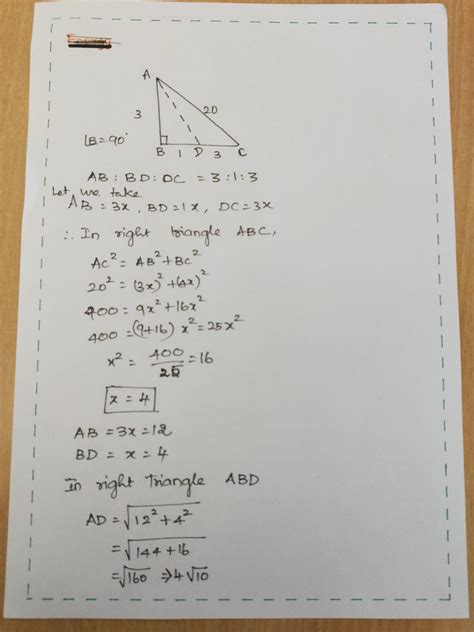 A
3
20
∠B=90°
B 1 D 3 C
AB : BD : DC = 3:1:3
Let we take
AB = 3x, BD=1x, DC=3x
∴ In right triangle ABC,
AC² = AB²+BC²
20² = (3x)²+(4x)²
400 = 9x²+16x²
400 = (9+16) x² = 25x²
x² = 400/25 = 16
x = 4
AB = 3x = 12
BD = x = 4
In right triangle ABD
AD = √12²+4²
= √144+16
= √160 ⇒ 4√10